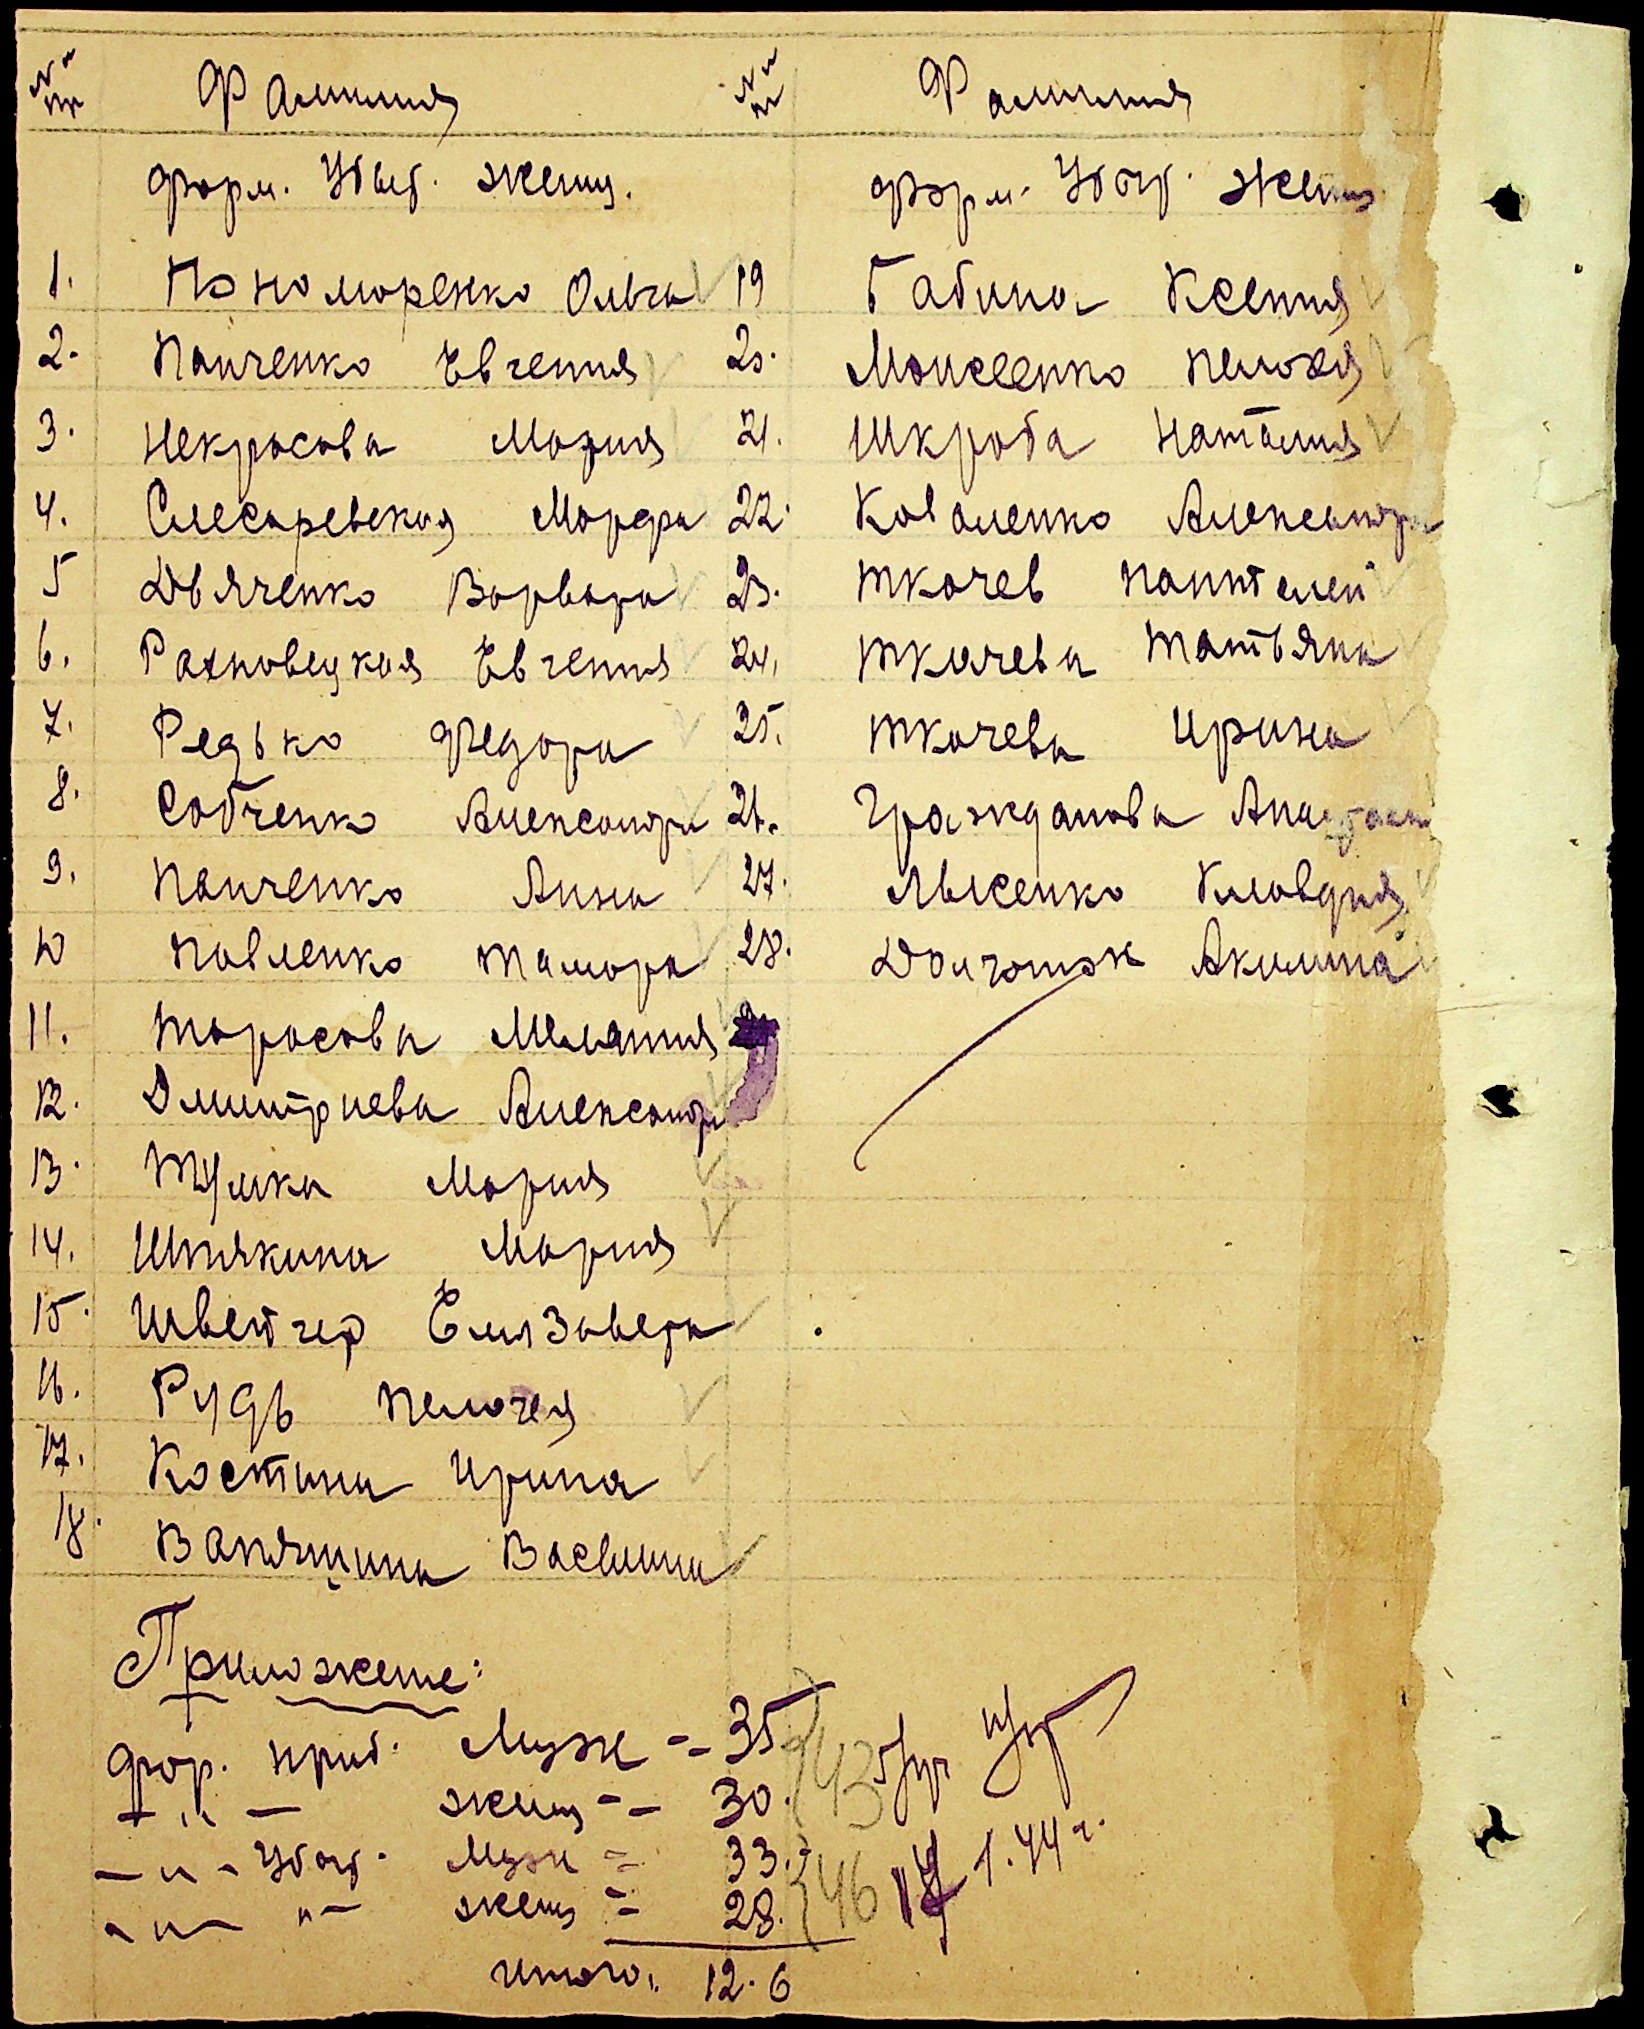 №№ пп Фамилия
форм. Убыт. женщ.
1. Пономоренко Ольга
2. Панченко Евгения
3. Некрасова Мария
4. Слесаревская Марфа
5 Дьяченко Варвара
6. Рахновецкая Евгения
7. Редько Федора
8. Собченко Александра
9. Панченко Анна
10 Павленко Тамара
11. Тарасова Мелания
12. Дмитриева Александр
13. Тумка Мария
14. Шпякина Мария
15. Швейгер Елизавета
16. Рудь Пелагея
17. Костина Ирина
18. Василина
№№ пп Фамилия
форм. Убыт. женщ
19 Бабина Ксения
20. Моисеенко Пелагея
21. Шкроба Наталия
22. Коваленко Александра
23. Ткачев Пантелей
24. Ткачева Татьяна
25. Ткачева Ирина
26. Гражданова Анастаси
27. Лысенко Клавдия
28. Долготяк Акилина
Приложение:
фор. приб. Муж = 35
— " — женщ = 30.
— " — Убыт. Муж = 33.
— " — " — женщ = 28.
Итого: 12.6
43
46
17 1.44 г.